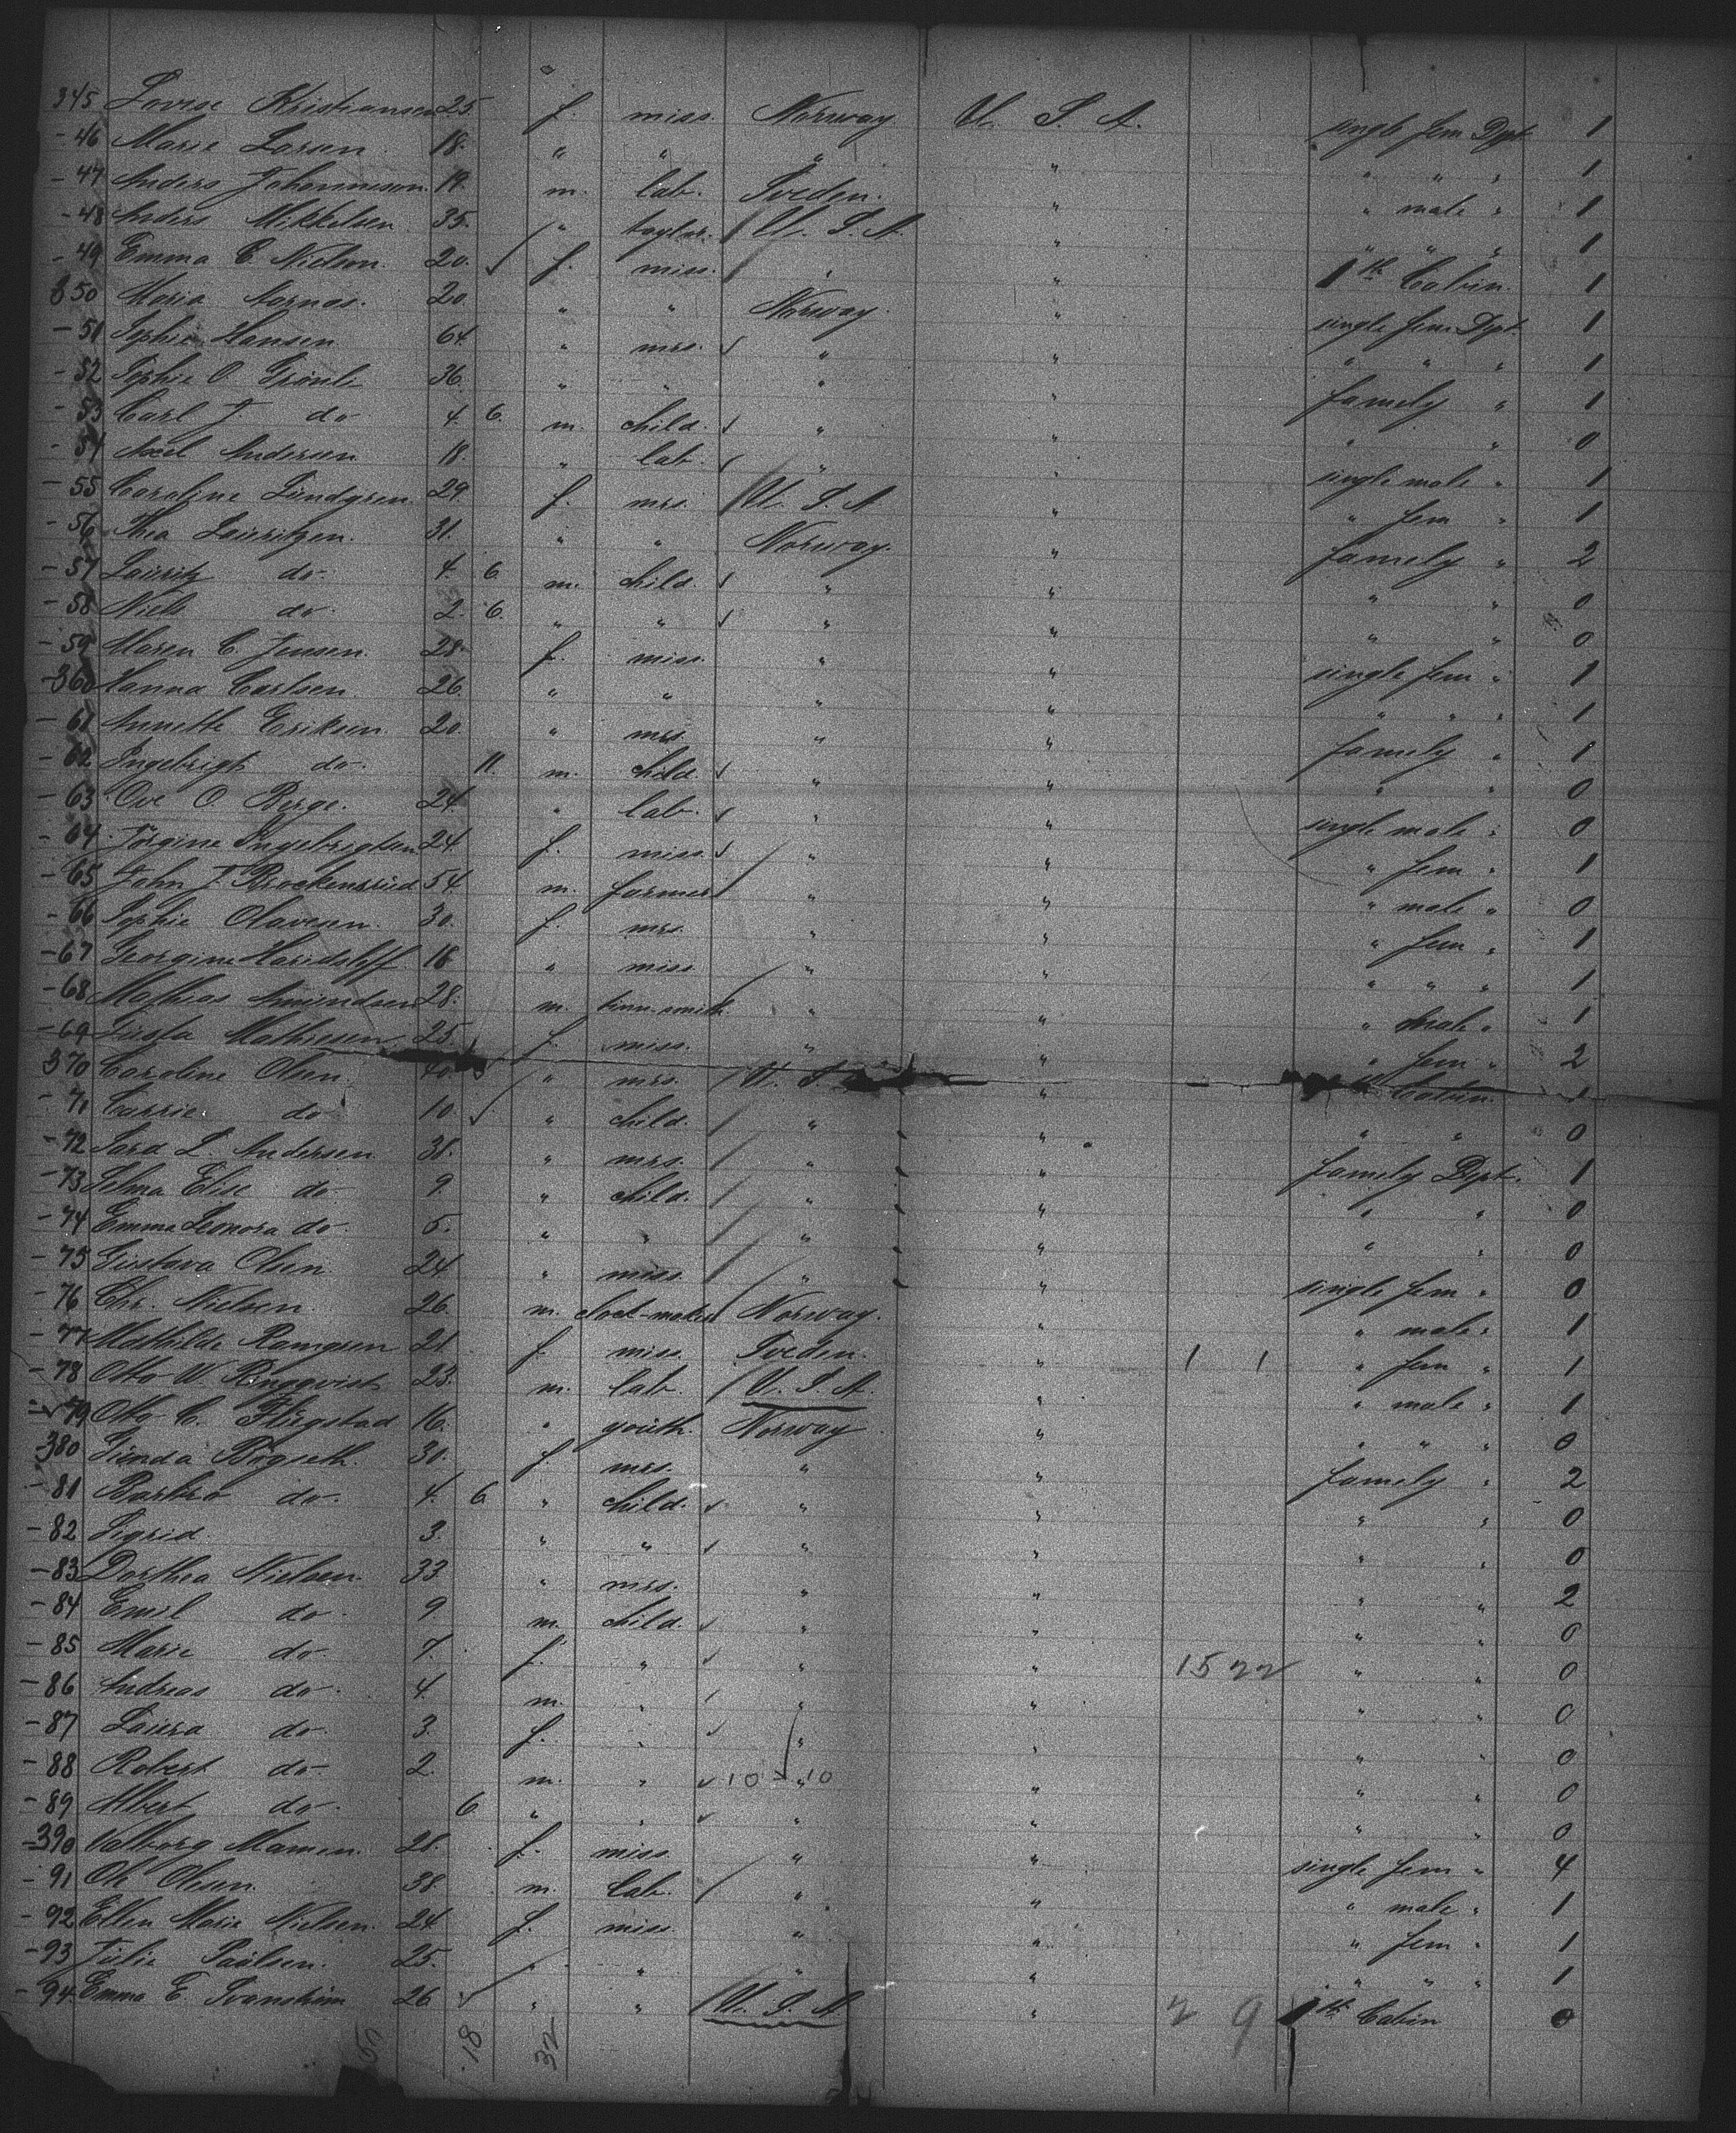 345 Lovise Kristiansen 25. f. miss. Norway U. S. A. single fem Dept. 1
- 46 Marie Larsen. 18. " " " " " " " 1
- 47 Anders Johannesson. 19. m. lab. Sveden. " " male " 1
- 48 Anders Mikkelsen 35. " taylor. U. S. A. " " " " 1
- 49 Emma C. Nielsen. 20. f. miss. " " 1st Cabin. 1
350 Maria 20. " " Norway. " single fem Dept. 1
- 51 Sophie Hansen 64. " mrs. " " " " " 1
- 52 Sophie O. Grönli 36. " " " " famely " 1
- 53 Carl J do 4. 6. m. child. " " " " 0
- 54 Axel Andersen 18. " lab. " " single male " 1
- 55 Caroline Lundgren 29. f. mrs. U. S. A " " fem " 1
- 56 Thea Lauritzen. 31. " " Norway. " famely " 2
- 57 Lauritz do. 4. 6. m. child. " " " " 0
- 58 Niels do. 2. 6. " " " " " " 0
- 59 Maren C. Jensen. 28. f. miss. " " single fem " 1
- 360 Hanna Carlsen. 26. " " " " " " " 1
- 61 Annette Eriksen. 20. " mrs. " " famely " 1
- 62 Ingebrigt do. 11. m. child " " " " 0
- 63 Ove O. Berge. 24. " lab. " " single male " 0
- 64 Jörgine Ingebrigtsen 24. f. miss. " " " fem " 1
- 65 John J. Brockensrud 54. m. farmer " " " male " 0
- 66 Sophie Olavesen. 30. f. mrs. " " " fem " 1
- 67 Georgine 18 " miss " " " " " 1
- 68 Mathias Amundsen 28. m. tinn-smith. " " " male " 1
- 69 Gusta Mathiesen 25. f. miss. " " " fem " 2
370 Caroline Olsen. 40. " mrs. U. S. " Cabin. 1
- 71 Carrie do 10. " child. " " " " 0
- 72 Sara L. Andersen 38. " mrs. " " famely Dept. 1
- 73 Selma Elise do 9. " child. " " " " 0
- 74 Emma Leonora do. 5. " " " " " " 0
- 75 Gustava Olsen 24. " miss. " " single fem " 0
- 76 Chr. Nielsen. 26. m. clock-maker Norway. " " male " 1
- 77 Mathilde Ramgren 21. f. miss. Sveden. " 1 1 " fem " 1
- 78 Otto W. Ringqvist 23. m. lab. U. S. A. " " male " 1
- 79 Otto C. Flugstad 16. " youth. Norway " " " " 0
- 380 Gunda Bögseth. 30. f. mrs. " " famely " 2
- 81 Barbro do. 4. 6 " child. " " " " 0
- 82 Sigrid 3. " " " " " " 0
- 83 Dorthea Nielsen. 33 " mrs. " " " " 2
- 84 Emil do. 9 m. child. " " " " 0
- 85 Marie do. 7. f. " " " 15 22 " " 0
- 86 Andreas do. 4. m. " " " " " 0
- 87 Laura do. 3. f. " " " " " 0
- 88 Robert do. 2. m. " 10 " 10 " " " 0
- 89 Albert do. 6 " " " " " " 0
- 390 Valborg Mamen. 28. f. miss. " " single fem " 4
- 91 Ole Olsen. 38. m. lab. " " " male " 1
- 92 Ellen Marie Nielsen. 24. f. miss. " " " fem " 1
- 93 Julie Paulsen. 25. " " " " " " " 1
- 94. Emma E. Svanström 26 " " U. S. A " 2 9 1st Cabin 0
18 32